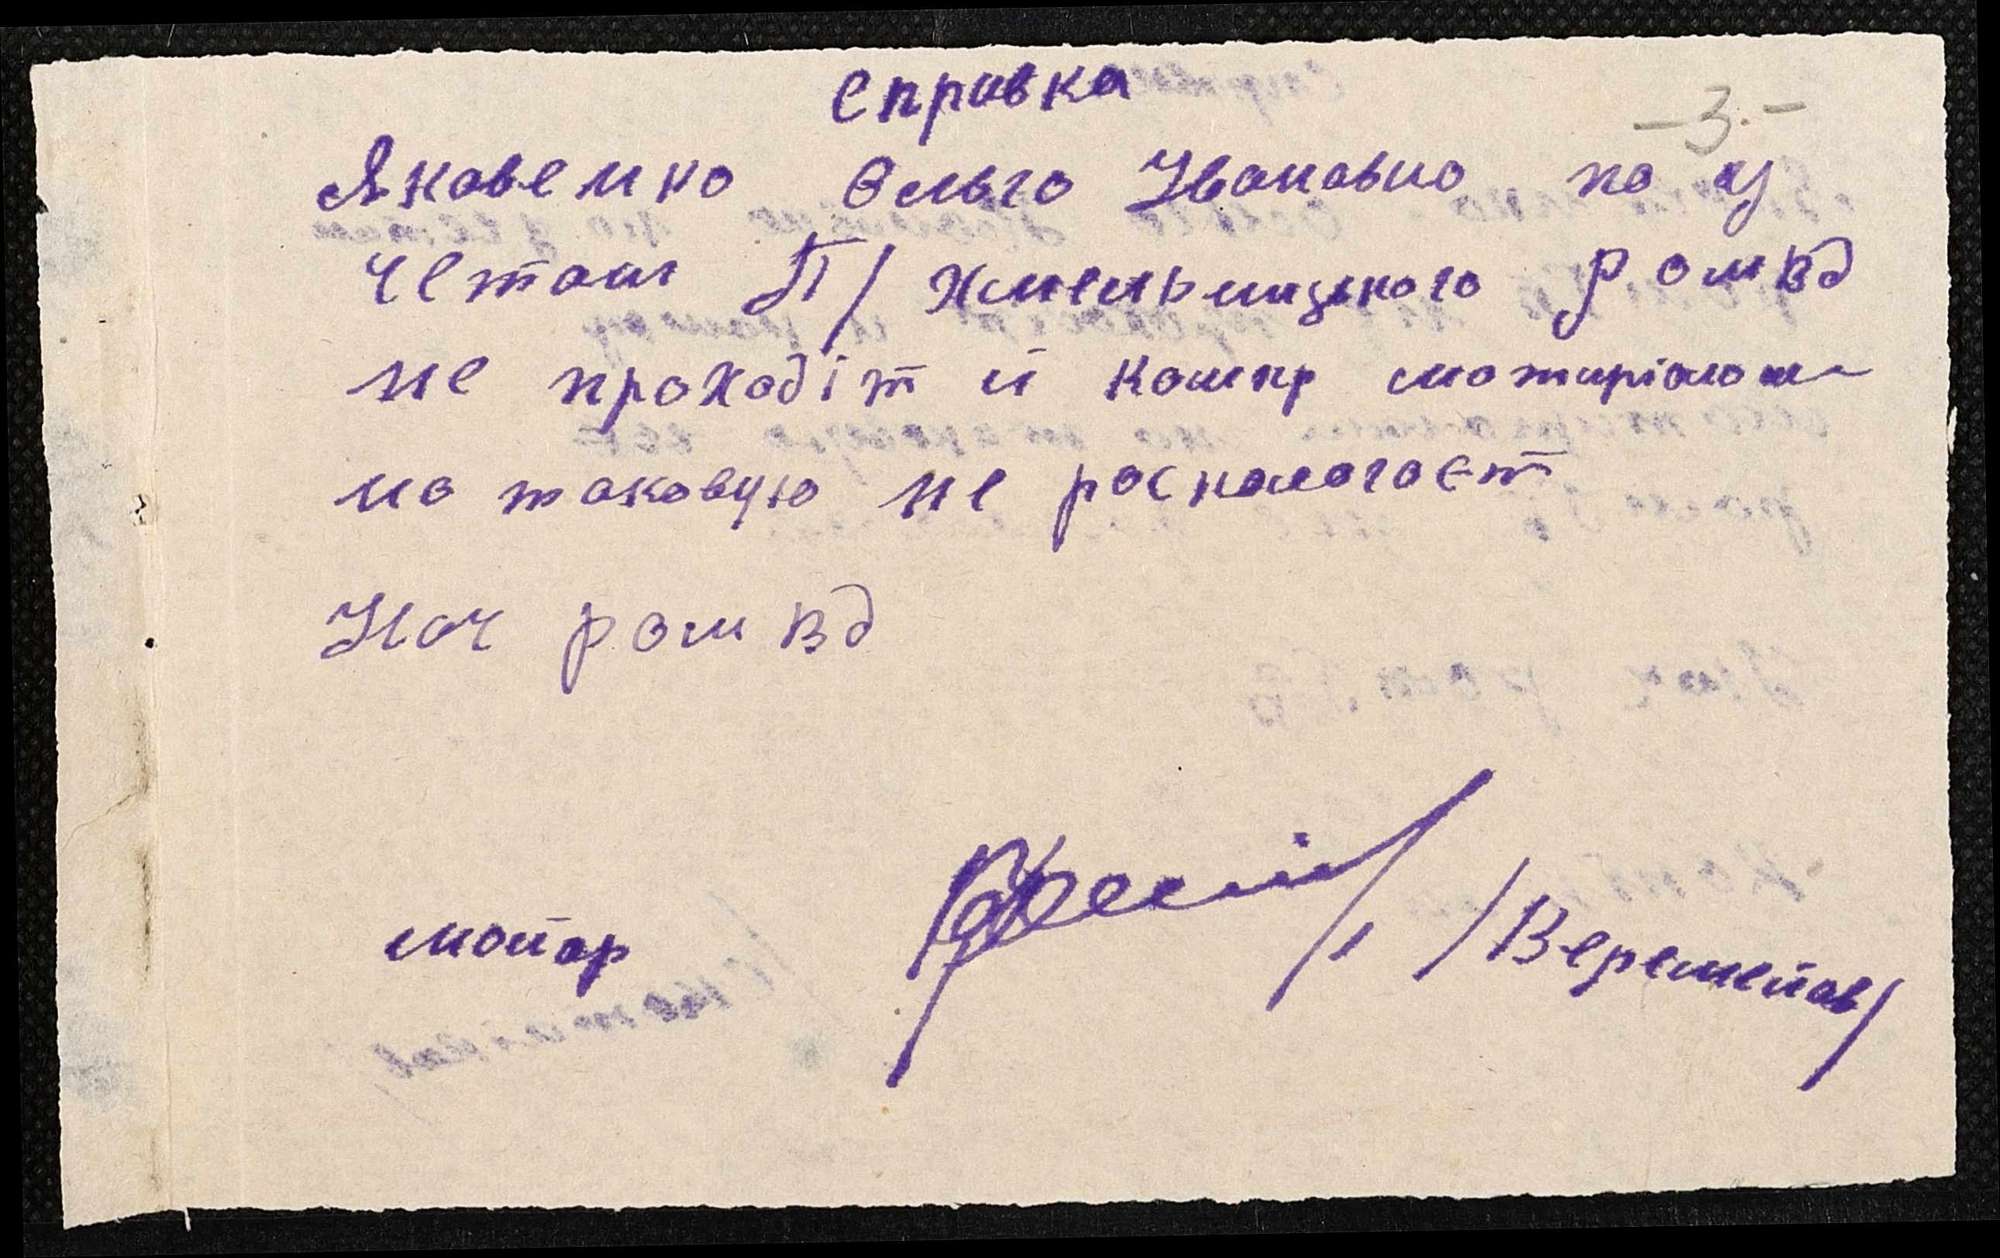 Справка
-3.-
Яковенко Ольга Ивановна по у
четам П/ Хмельницького РОМВД
не проходіт и компр матиріалам
на таковую не роспологаєт
Нач РОМВД
майор
/Веремейов/